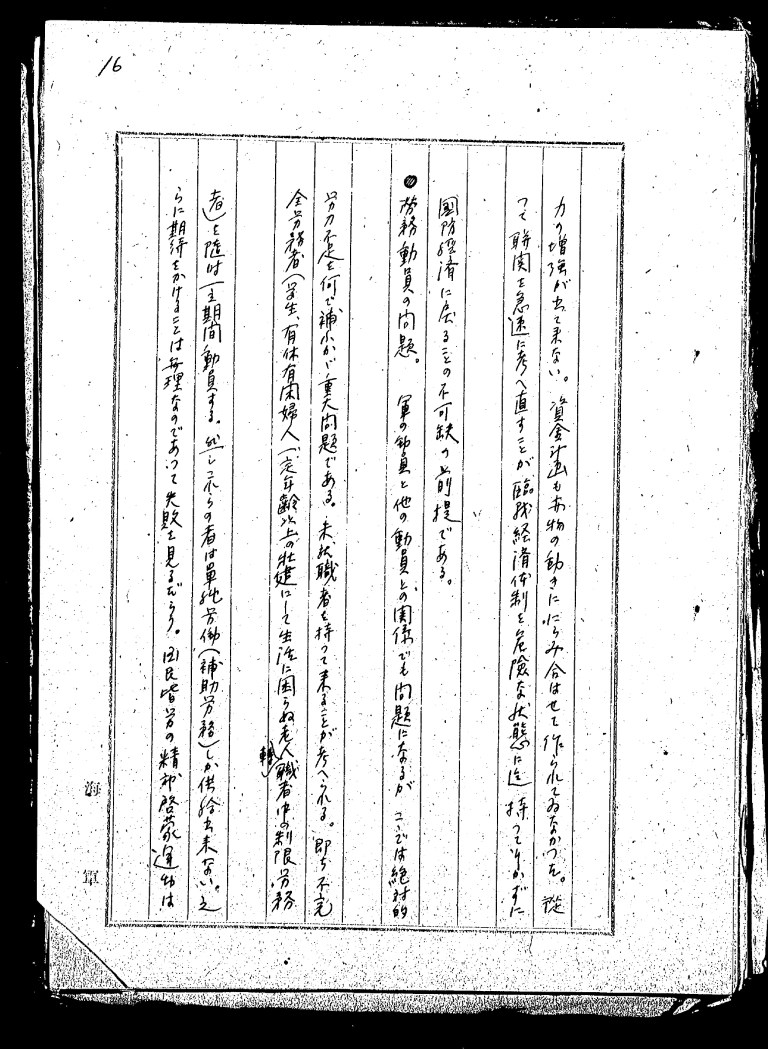 16
力の増強が出て来ない。資金計画も亦物の動きににらみ合はせて作られてゐなかつた。從
つて聯関を急速に考へ直すことが臨戦経済体制を危險な状態に迄持つて行かずに
國防経済に戻ることの不可缺の前提である。
労務動員の問題。 軍の動員と他の動員との関係でも問題になるが こゝでは絶対的
労力不足を何で補ふかゞ重大問題である。未就職者を持つて来ることが考へられる。即ち不完
全労務者(学生、有休有閑婦人、一定年齢以上の壮健にして生活に困らぬ老人、轉職者中の制限労務
者)を随時一定期間動員する。然しこれらの者は單純労働(補助労務)しか供給出来ない。之
らに期待をかけることは無理なのであつて失敗を見るだらう。国民皆労の精神啓蒙運動は
海軍